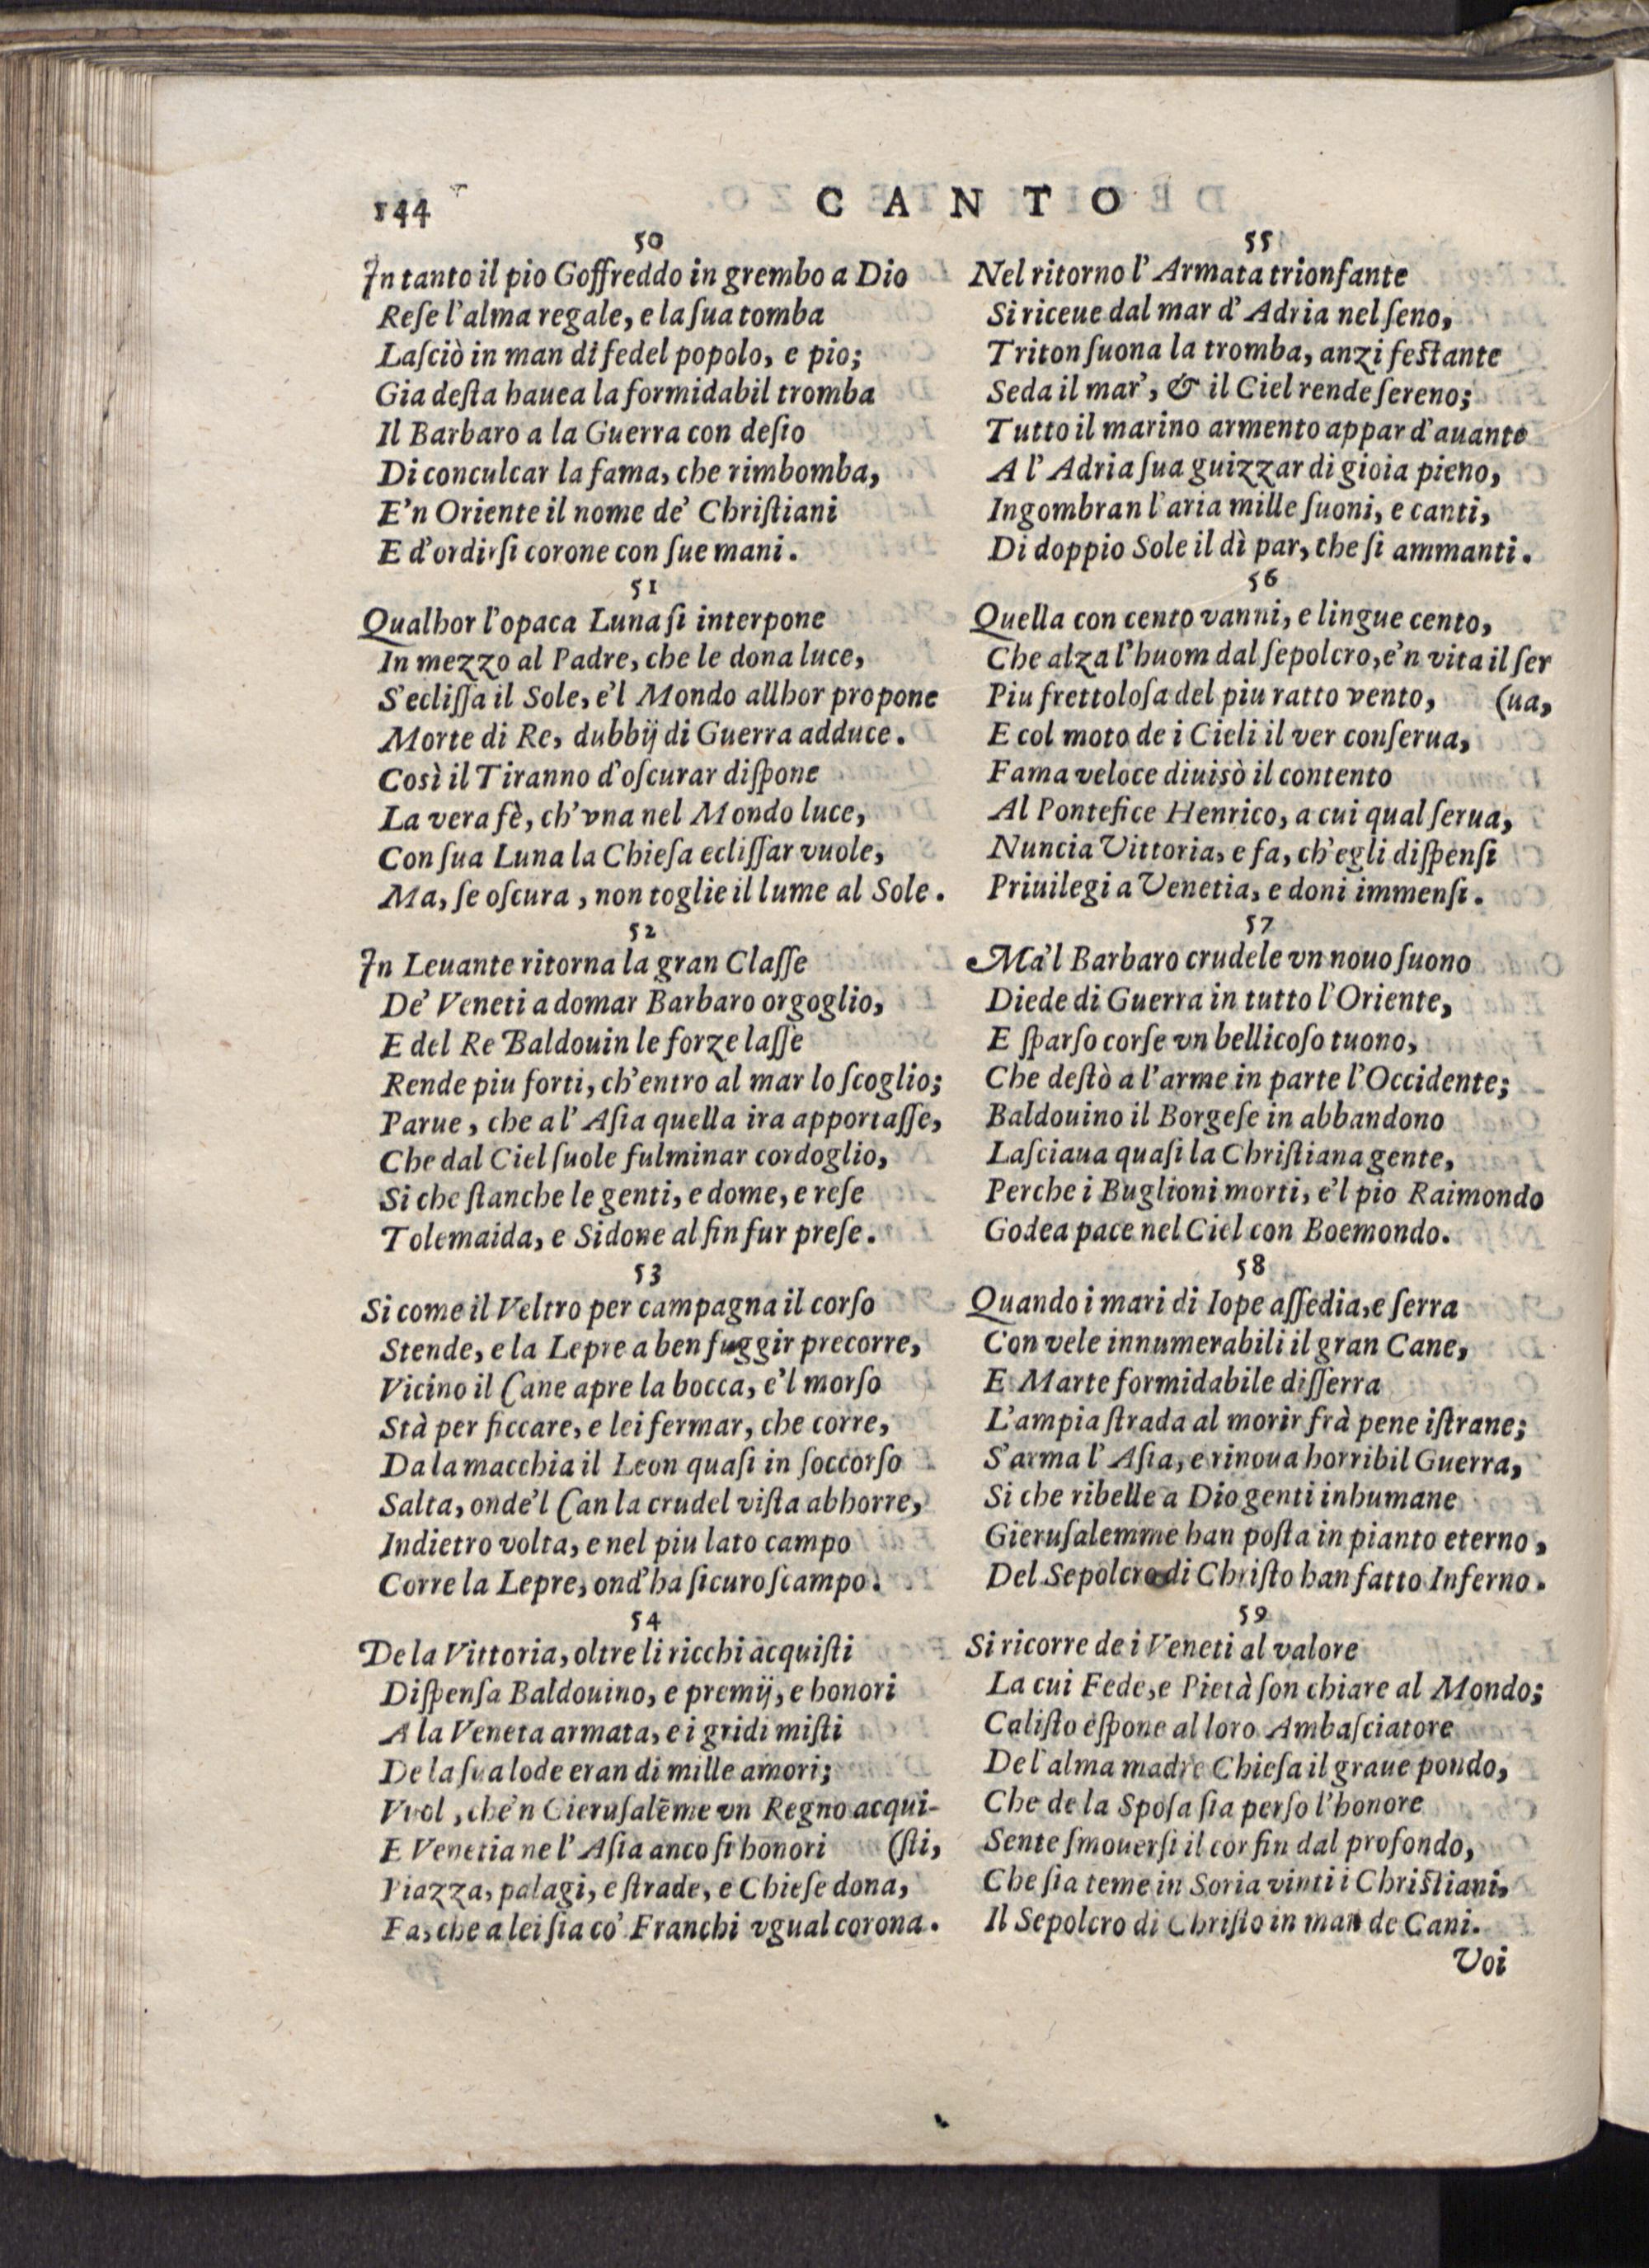 144
CANTO
50
In tanto il pio Goffreddo in grembo a Dio
Reſe l'alma regale, e la ſua tomba
Laſciò in man di fedel popolo, e pio;
Gia deſta hauea la formidabil tromba
Il Barbaro a la Guerra con deſio
Di conculcar la fama, che rimbomba,
E'n Oriente il nome de' Chriſtiani
E d'ordirſi corone con ſue mani.
51
Qualhor l'opaca Luna ſi interpone
In mezzo al Padre, che le dona luce,
S'ecliſſa il Sole, e'l Mondo allhor propone
Morte di Re, dubbij di Guerra adduce.
Così il Tiranno d'oſcurar diſpone
La vera fè, ch'vna nel Mondo luce,
Con ſua Luna la Chieſa ecliſſar vuole,
Ma, ſe oſcura, non toglie il lume al Sole.
52
In Leuante ritorna la gran Claſſe
De' Veneti a domar Barbaro orgoglio,
E del Re Baldouin le forze laſſe
Rende piu forti, ch'entro al mar lo ſcoglio;
Parue, che a l'Aſia quella ira apportaſſe,
Che dal Ciel ſuole fulminar cordoglio,
Si che ſtanche le genti, e dome, e reſe
Tolemaida, e Sidone al fin fur preſe.
53
Si come il Veltro per campagna il corſo
Stende, e la Lepre a ben fuggir precorre,
Vicino il Cane apre la bocca, e'l morſo
Stà per ficcare, e lei fermar, che corre,
Da la macchia il Leon quaſi in ſoccorſo
Salta, onde'l Can la crudel viſta abhorre,
Indietro volta, e nel piu lato campo
Corre la Lepre, ond'ha ſicuro ſcampo.
54
De la Vittoria, oltre li ricchi acquiſti
Diſpenſa Baldouino, e premij, e honori
A la Veneta armata, e i gridi miſti
De la ſua lode eran di mille amori;
Vuol, che'n Gieruſalēme vn Regno acqui-
E Venetia ne l'Aſia anco ſi honori (ſti,
Piazza, palagi, e ſtrade, e Chieſe dona,
Fa, che a lei ſia co' Franchi vgual corona.
55
Nel ritorno l'Armata trionfante
Si riceue dal mar d'Adria nel ſeno,
Triton ſuona la tromba, anzi feſtante
Seda il mar', & il Ciel rende ſereno;
Tutto il marino armento appar d'auante
A l'Adria ſua guizzar di gioia pieno,
Ingombran l'aria mille ſuoni, e canti,
Di doppio Sole il dì par, che ſi ammanti.
56
Quella con cento vanni, e lingue cento,
Che alza l'huom dal ſepolcro, e'n vita il ſer
Piu frettoloſa del piu ratto vento, (ua,
E col moto de i Cieli il ver conſerua,
Fama veloce diuisò il contento
Al Pontefice Henrico, a cui qual ſerua,
Nuncia Vittoria, e fa, ch'egli diſpenſi
Priuilegi a Venetia, e doni immenſi.
57
Ma'l Barbaro crudele vn nouo ſuono
Diede di Guerra in tutto l'Oriente,
E ſparſo corſe vn bellicoſo tuono,
Che deſtò a l'arme in parte l'Occidente;
Baldouino il Borgeſe in abbandono
Laſciaua quaſi la Chriſtiana gente,
Perche i Buglioni morti, e'l pio Raimondo
Godea pace nel Ciel con Boemondo.
58
Quando i mari di Iope aſſedia, e ſerra
Con vele innumerabili il gran Cane,
E Marte formidabile diſſerra
L'ampia ſtrada al morir frà pene iſtrane;
S'arma l'Aſia, e rinoua horribil Guerra,
Si che ribelle a Dio genti inhumane
Gieruſalemme han poſta in pianto eterno,
Del Sepolcro di Chriſto han fatto Inferno.
59
Si ricorre de i Veneti al valore
La cui Fede, e Pietà ſon chiare al Mondo;
Caliſto eſpone al loro Ambaſciatore
De l'alma madre Chieſa il graue pondo,
Che de la Spoſa ſia perſo l'honore
Sente ſmouerſi il cor fin dal profondo,
Che ſia teme in Soria vinti i Chriſtiani,
Il Sepolcro di Chriſto in man de Cani.
Voi